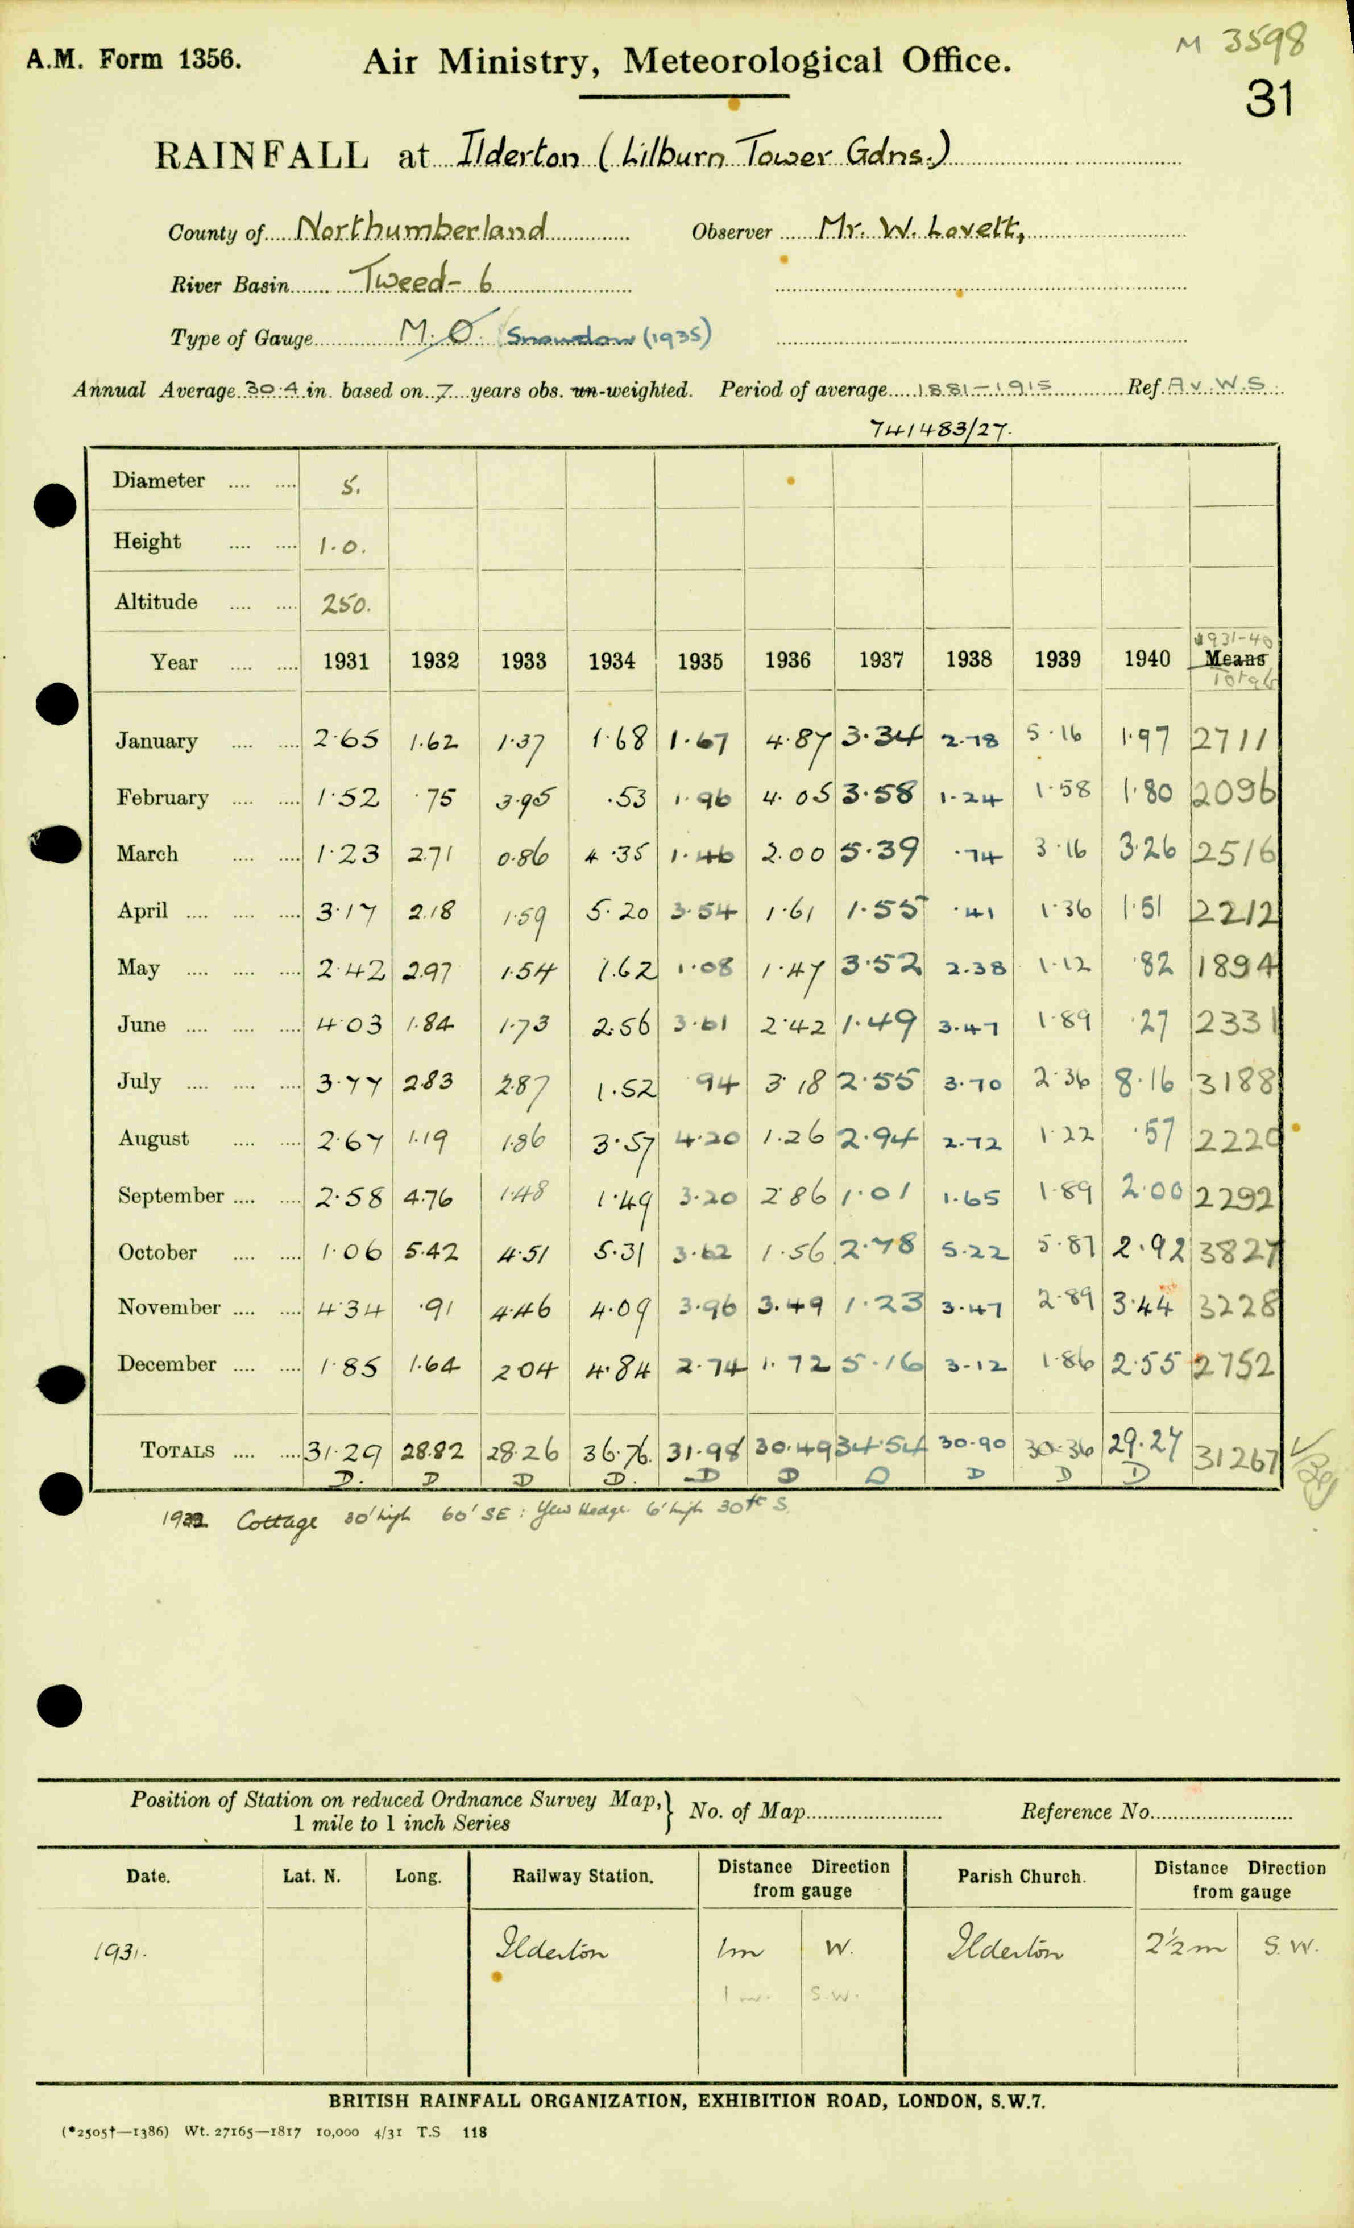 M 3598
A.M. Form 1356. Air Ministry, Meteorological Office.
31
RAINFALL at Ilderton (Lilburn Tower Gdns.)
County of Northumberland Observer Mr. W. Lovett,
River Basin Tweed - 6
Type of Gauge M.O. Snowdon (1935)
Annual Average 30.4 in. based on 7 years obs. un-weighted. Period of average 1881-1915 Ref. Av. W.S.
741483/27.
Diameter .... .... 5.
Height .... .... 1.0.
Altitude .... .... 250.
1931-40
Year .... .... 1931 1932 1933 1934 1935 1936 1937 1938 1939 1940 Means
Totals
January .... .... 2.65 1.62 1.37 1.68 1.67 4.87 3.34 2.78 5.16 1.97 2711
February .... .... 1.52 .75 3.95 .53 1.96 4.05 3.58 1.24 1.58 1.80 2096
March .... .... 1.23 2.71 0.86 4.35 1.46 2.00 5.39 .74 3.16 3.26 2516
April .... .... .... 3.17 2.18 1.59 5.20 3.54 1.61 1.55 .41 1.36 1.51 2212
May .... .... .... 2.42 2.97 1.54 1.62 1.08 1.47 3.52 2.38 1.12 .82 1894
June .... .... .... 4.03 1.84 1.73 2.56 3.61 2.42 1.49 3.47 1.89 .27 2331
July .... .... .... 3.77 2.83 2.87 1.52 .94 3.18 2.55 3.70 2.36 8.16 3188
August .... .... 2.67 1.19 1.86 3.57 4.20 1.26 2.94 2.72 1.22 .57 2220
September .... .... 2.58 4.76 1.48 1.49 3.20 2.86 1.01 1.65 1.89 2.00 2292
October .... .... 1.06 5.42 4.51 5.31 3.62 1.56 2.78 5.22 5.87 2.92 3827
November .... .... 4.34 .91 4.46 4.09 3.96 3.49 1.23 3.47 2.89 3.44 3228
December .... .... 1.85 1.64 2.04 4.84 2.74 1.72 5.16 3.12 1.86 2.55 2752
TOTALS .... .... 31.29 28.82 28.26 36.76. 31.98 30.49 34.54 30.90 30.36 29.27 31267
D. D D D. D D D D D D
Cottage 30' high 60' SE : Yew Hedge 6' high 30ft S.
Position of Station on reduced Ordnance Survey Map, } No. of Map Reference No.
1 mile to 1 inch Series
Date. Lat. N. Long. Railway Station. Distance Direction from gauge Parish Church. Distance Direction from gauge
1931. Ilderton 1m W. Ilderton 2½m S.W.
1 m. S.W.
BRITISH RAINFALL ORGANIZATION, EXHIBITION ROAD, LONDON, S.W.7.
(*2505†—1386) Wt. 27165—1817 10,000 4/31 T.S 118